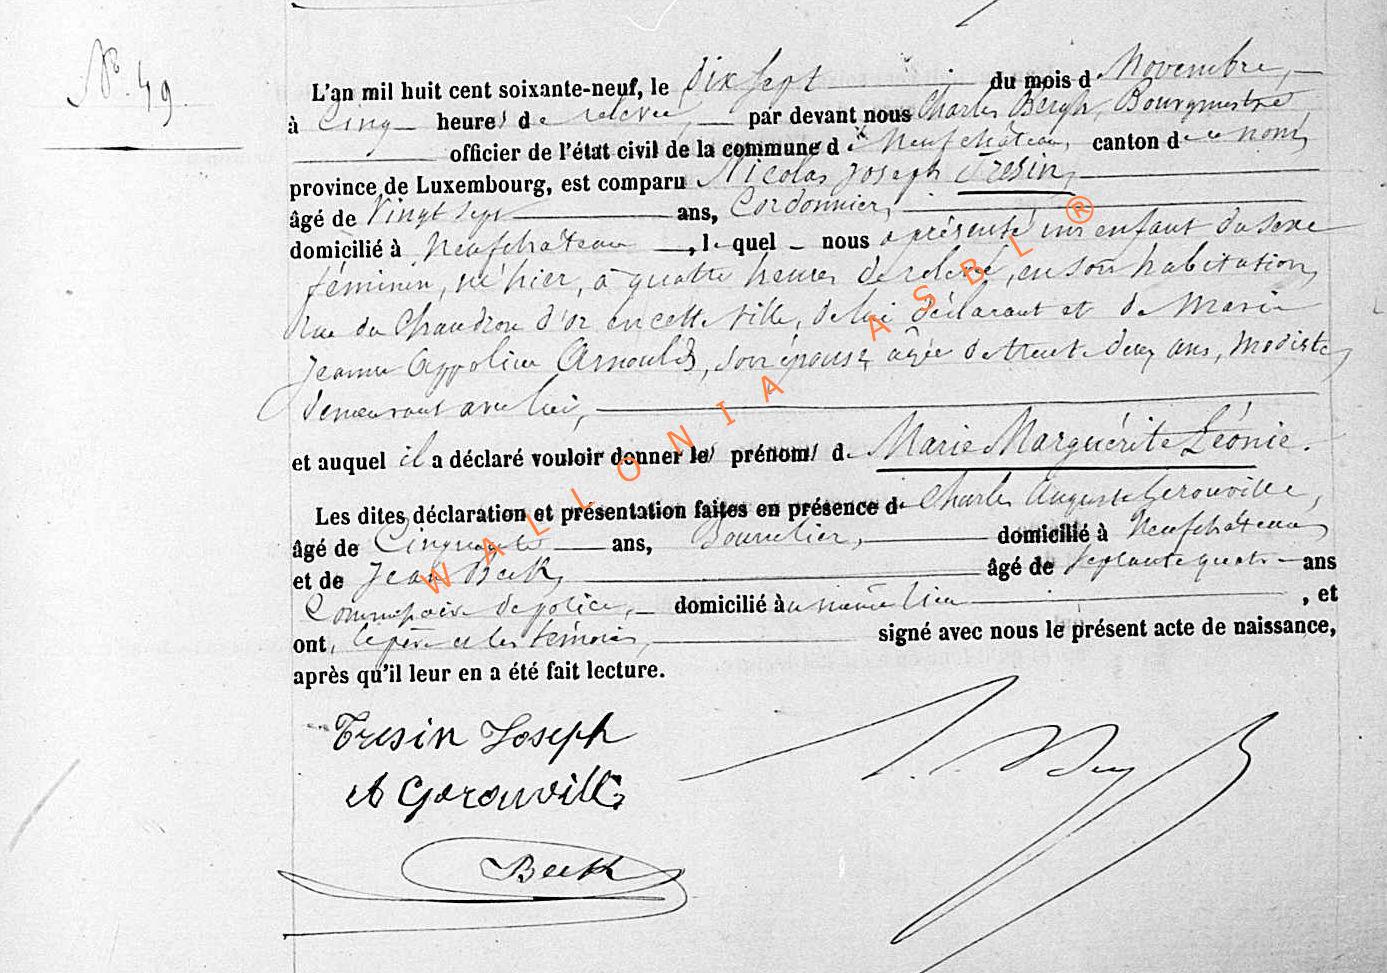 N° 49.
L'an mil huit cent soixante-neuf, le dix sept du mois de Novembre,
à Cinq heures de relevée, par devant nous Charles Bergh, Bourgmestre
officier de l'état civil de la commune de Neufchâteau, canton de ce nom,
province de Luxembourg, est comparu Nicolas Joseph Tresin,
âgé de Vingt sept ans, Cordonnier,
domicilié à Neufchâteau, lequel nous a présenté un enfant du sexe
féminin, né hier, à quatre heures de relevé, en son habitation,
Rue du Chaudron d'or en cette ville, de lui déclarant et de Marie
Jeanne Appoline Arnould, son épouse, agée de trente deux ans, modiste,
demeurant avec lui,
et auquel il a déclaré vouloir donner les prénoms de Marie Marguérite Léonie.
Les dites déclaration et présentation faites en présence de Charles Auguste Gerouville,
âgé de Cinquante ans, Bourrelier, domicilié à Neufchâteau,
et de Jean Beck, âgé de septante quatre ans
Commissaire de police, domicilié au même lieu, et
ont, le père et les témoins, signé avec nous le présent acte de naissance,
après qu'il leur en a été fait lecture.
Tresin Joseph
A Gerouville
Beck
WALLONIA ASBL ®